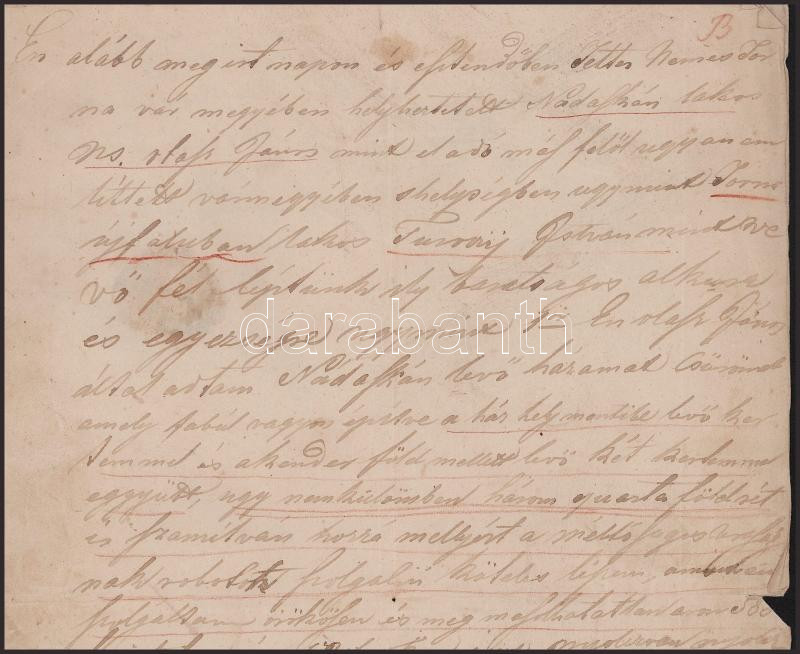 B
En alább meg irt napon és esztendőben Tettes Nemes Tor
na vár megyében helyheztetett Nádaskán lakos
Ns. olasz János mint el adó más felöl ugyan em
littett vármegyében s helységben ugymint Torna
újfaluban lakos Istvánn mint ve
vő fél léptünk ily baratságos alkura
és egyezségre ugymint 1ör En olasz János
által adtam Nádaskán levő házamat Csürömel
amely fabúl vagyon épitve a ház hely mentibe levő ker
temmel és a kender föld mellett levő két kertemmel
eggyütt, ugy nemkülömben három quarta földrét
is számitván hozzá mellyért a méltóságos
nak robotot szolgálni köteles lészen, amint én
szolgáltam örökösen és meg másolhatatlan
darabanth